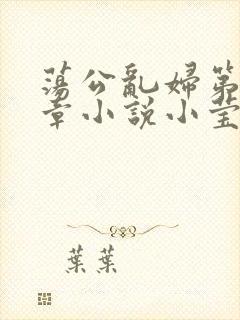 蕩公亂婦第
章小說小莹
葉葉